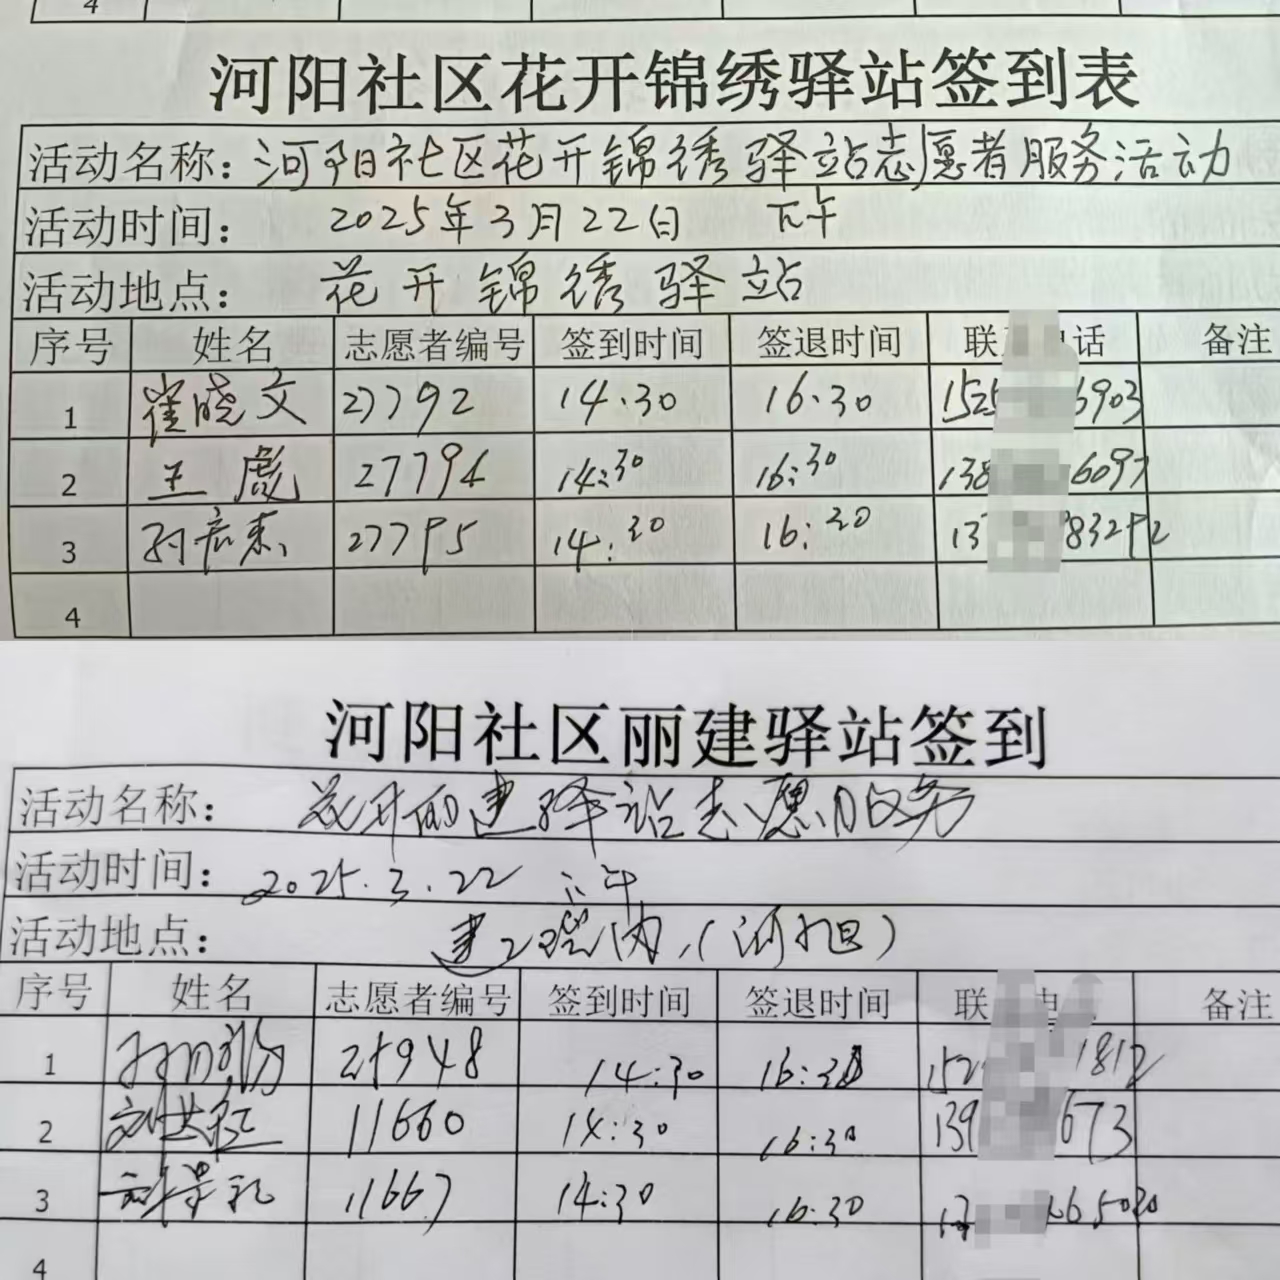 4
河阳社区花开锦绣驿站签到表
活动名称：河阳社区花开锦绣驿站志愿者服务活动
活动时间： 2025年3月22日 下午
活动地点： 花开锦绣驿站
序号 姓名 志愿者编号 签到时间 签退时间 联 话 备注
1 崔晓文 27792 14.30 16.30 152 6903
2 王彪 27794 14:30 16:30 138 6097
3 27795 14:30 16:30 13 83292
4
河阳社区丽建驿站签到
活动名称： 花开丽建驿站志愿服务
活动时间： 2025.3.22 下午
活动地点：
序号 姓名 志愿者编号 签到时间 签退时间 联 电 备注
1 25948 14:30 16:30 152 1812
2 刘洪红 11660 14:30 16:30 139 673
3 11667 14:30 16:30 65030
4